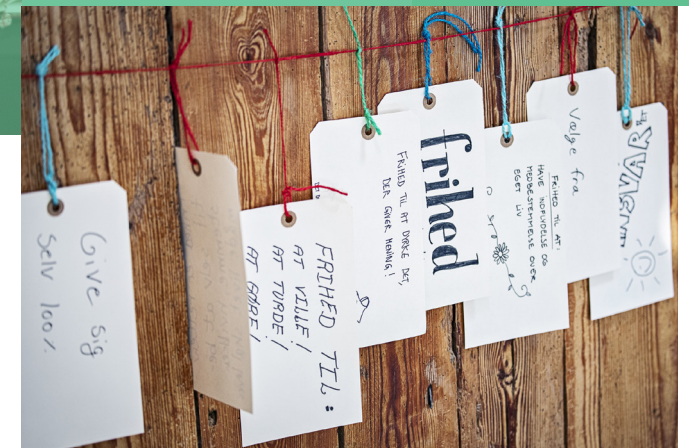 Give sig
Selv 100%
FRIHED TIL:
AT VILLE!
AT TURDE!
AT GØRE!
FRIHED TIL AT DYRKE DET,
DER GIVER MENING!
frihed
FRIHED TIL AT:
HAVE INDFLYDELSE OG
MEDBESTEMMELSE OVER
EGET LIV
Vælge fra